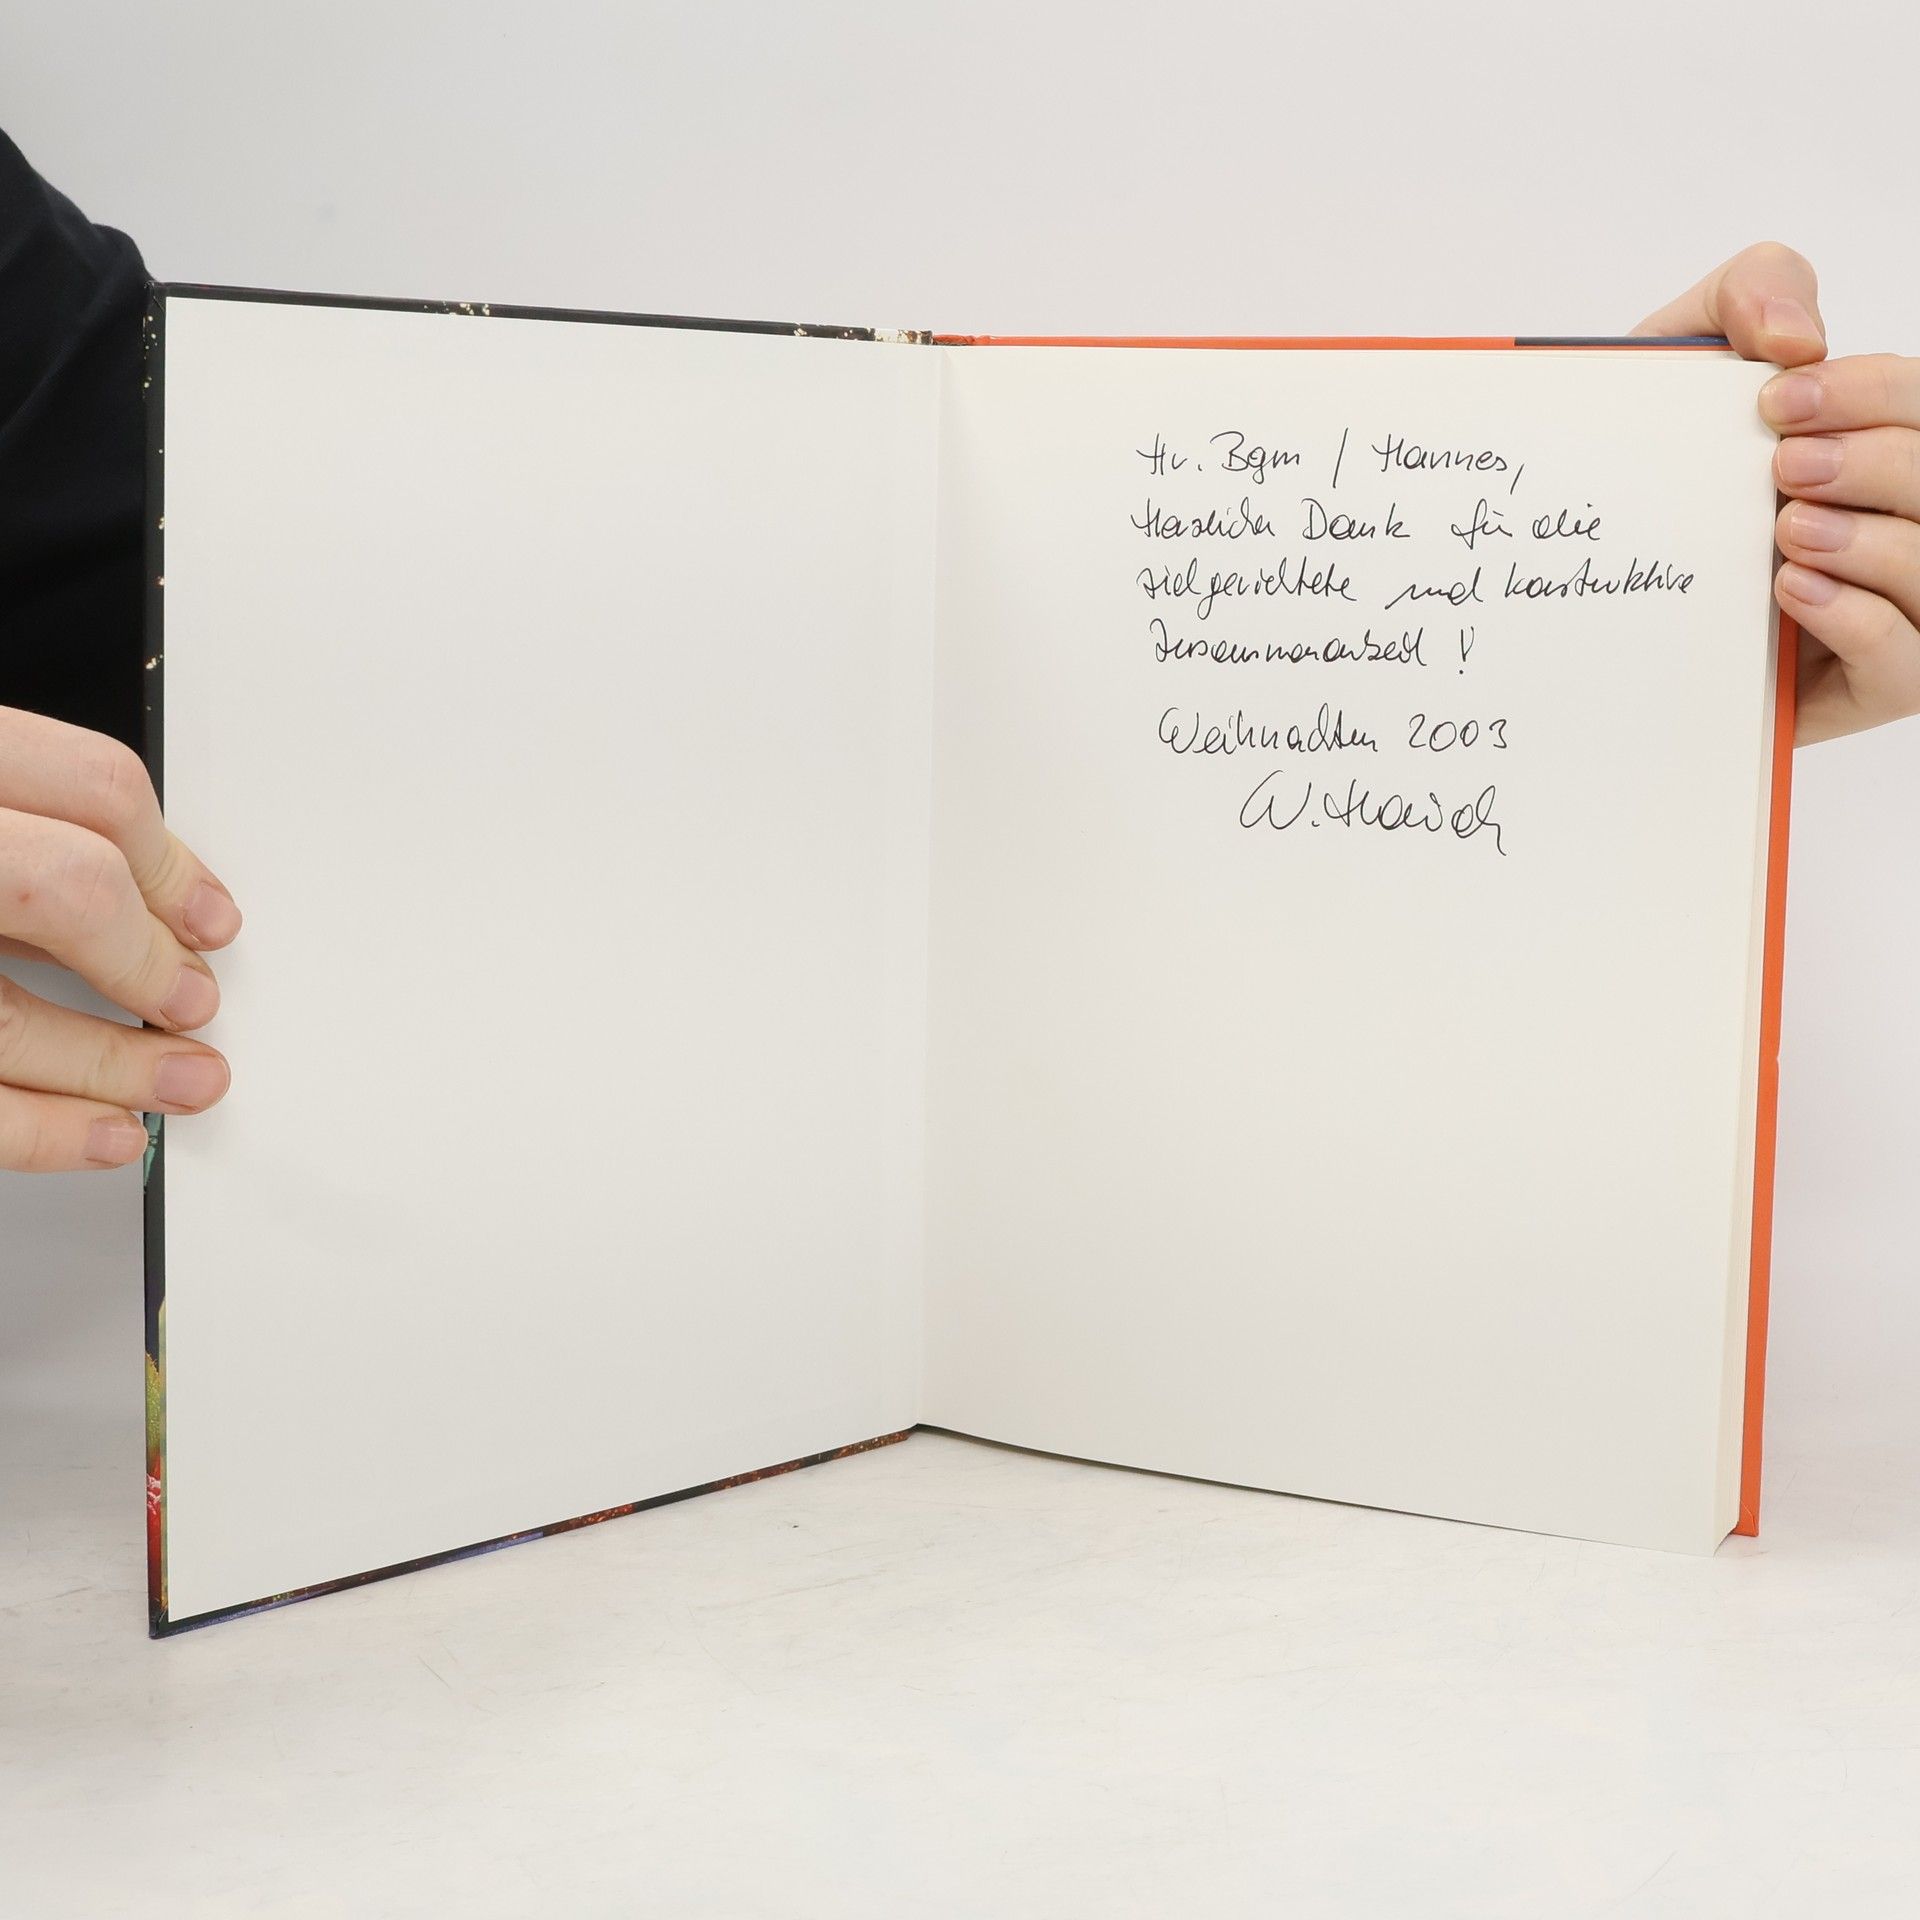 Hr. Bgm / Hannes,
Herzlichen Dank für die
zielgerichtete und konstruktive
Zusammenarbeit !
Weihnachten 2003
W.